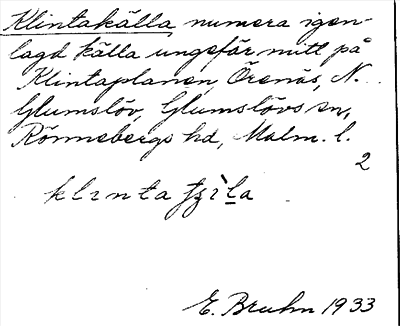 Klintakälla, numera igen-
lagd källa ungefär mitt på
Klintaplanen, Örenäs, N.
Glumslöv, Glumslövs sn,
Rönnebergs hd, Malm. l.
2
klinta
E. Bruhn 1933